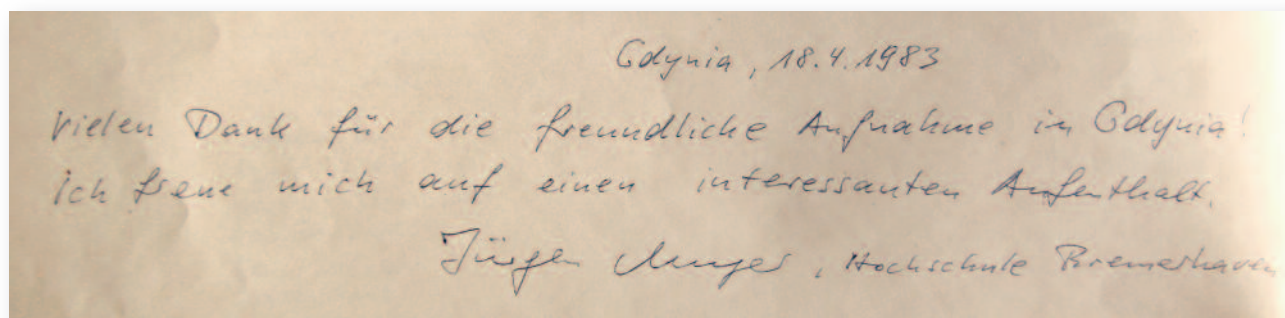 Gdynia, 18.4.1983
Vielen Dank für die freundliche Aufnahme in Gdynia!
Ich freue mich auf einen interessanten Aufenthalt.
Jürgen , Hochschule Bremerhaven